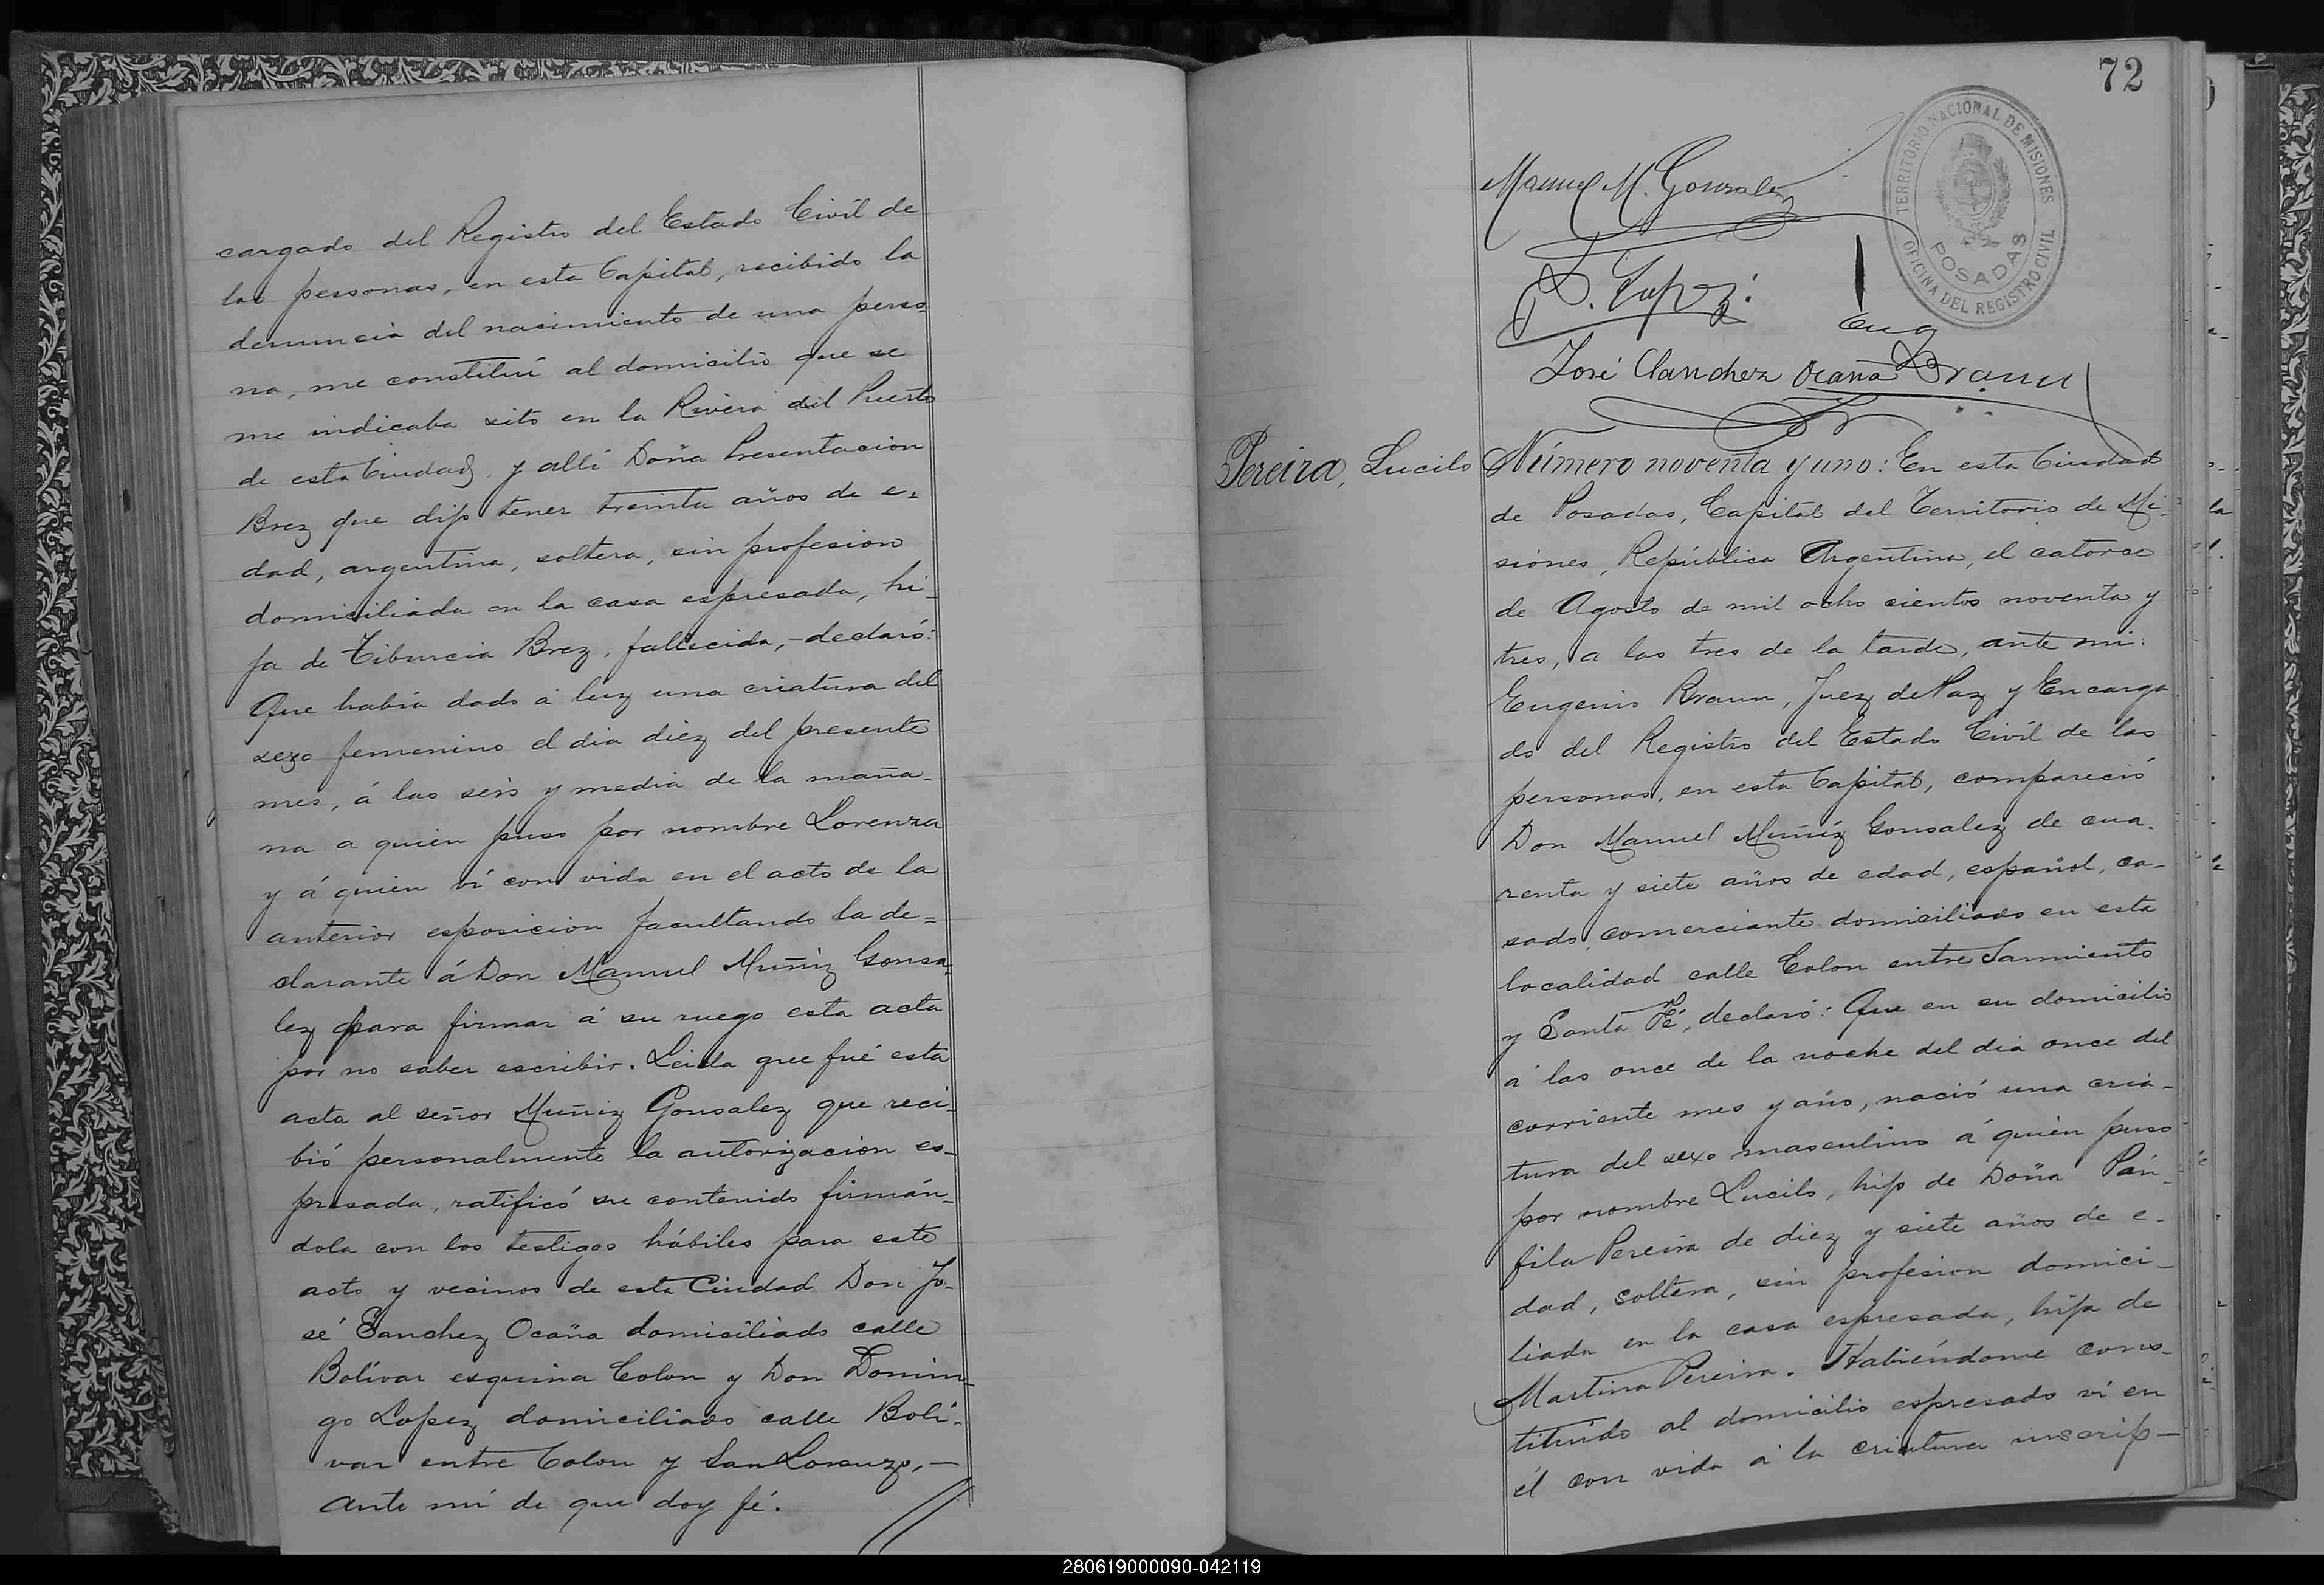 cargado del Registro del Estado Civil de
las personas, en esta Capital, recibido la
denuncia del nacimiento de una perso=
na, me constituí al domicilio que se
me indicaba sito en la Rivera del Puerto
de esta Ciudad, y alli Doña Presentacion
Brez que dijo tener treinta años de e=
dad, argentina, soltera, sin profesion
domiciliada en la casa espresada, hi-
ja de Tiburcia Brez, fallecida,- declaró:
Que habia dado á luz una criatura del
sexo femenino el dia diez del presente
mes, á las seis y media de la maña-
na a quien puso por nombre Lorenza
y á quien ví con vida en el acto de la
anterior esposicion facultando la de=
clarante á Don Manuel Muñiz Gonsa-
lez para firmar á su ruego esta acta
por no saber escribir. Leida que fué esta
acta al señor Muñiz Gonsalez que reci-
bió personalmente la autorizacion es-
presada, ratificó su contenido firmán-
dola con los testigos hábiles para este
acto y vecinos de esta Ciudad Don Jo-
sé Sanchez Ocaña domiciliado calle
Bolívar esquina Colon y Don Domin-
go Lopez domiciliado calle Bolí-
var entre Colon y San Lorenzo,-
ante mí de que doy fé.
72
TERRITORIO NACIONAL DE MISIONES
POSADAS
OFICINA DEL REGISTRO CIVIL
Manuel M. Gonzalez
D. Lopez
Eug Braun
José Sanchez Ocaña
Pereira, Lucilo
Número noventa y uno: En esta Ciudad
de Posadas, Capital del Territorio de Mi-
siones, República Argentina, el catorce
de Agosto de mil ocho cientos noventa y
tres, a las tres de la tarde, ante mi:
Eugenio Braun, Juez de Paz y Encarga-
do del Registro del Estado Civíl de las
personas, en esta Capital, compareció
Don Manuel Muñíz Gonsalez de cua-
renta y siete años de edad, español, ca-
sado, comerciante domiciliado en esta
localidad calle Colon entre Sarmiento
y Santa Fé, declaró: Que en su domicilio
á las once de la noche del dia once del
corriente mes y año, nació una cria-
tura del sexo masculino á quien puso
por nombre Lucilo, hijo de Doña Pán-
fila Pereira de diez y siete años de e-
dad, soltera, sin profesion domici-
liada en la casa espresada, hija de
Martina Pereira. Habiéndome cons-
tituído al domicilio espresado ví en
él con vida á la criatura inscrip-
280619000090-042119